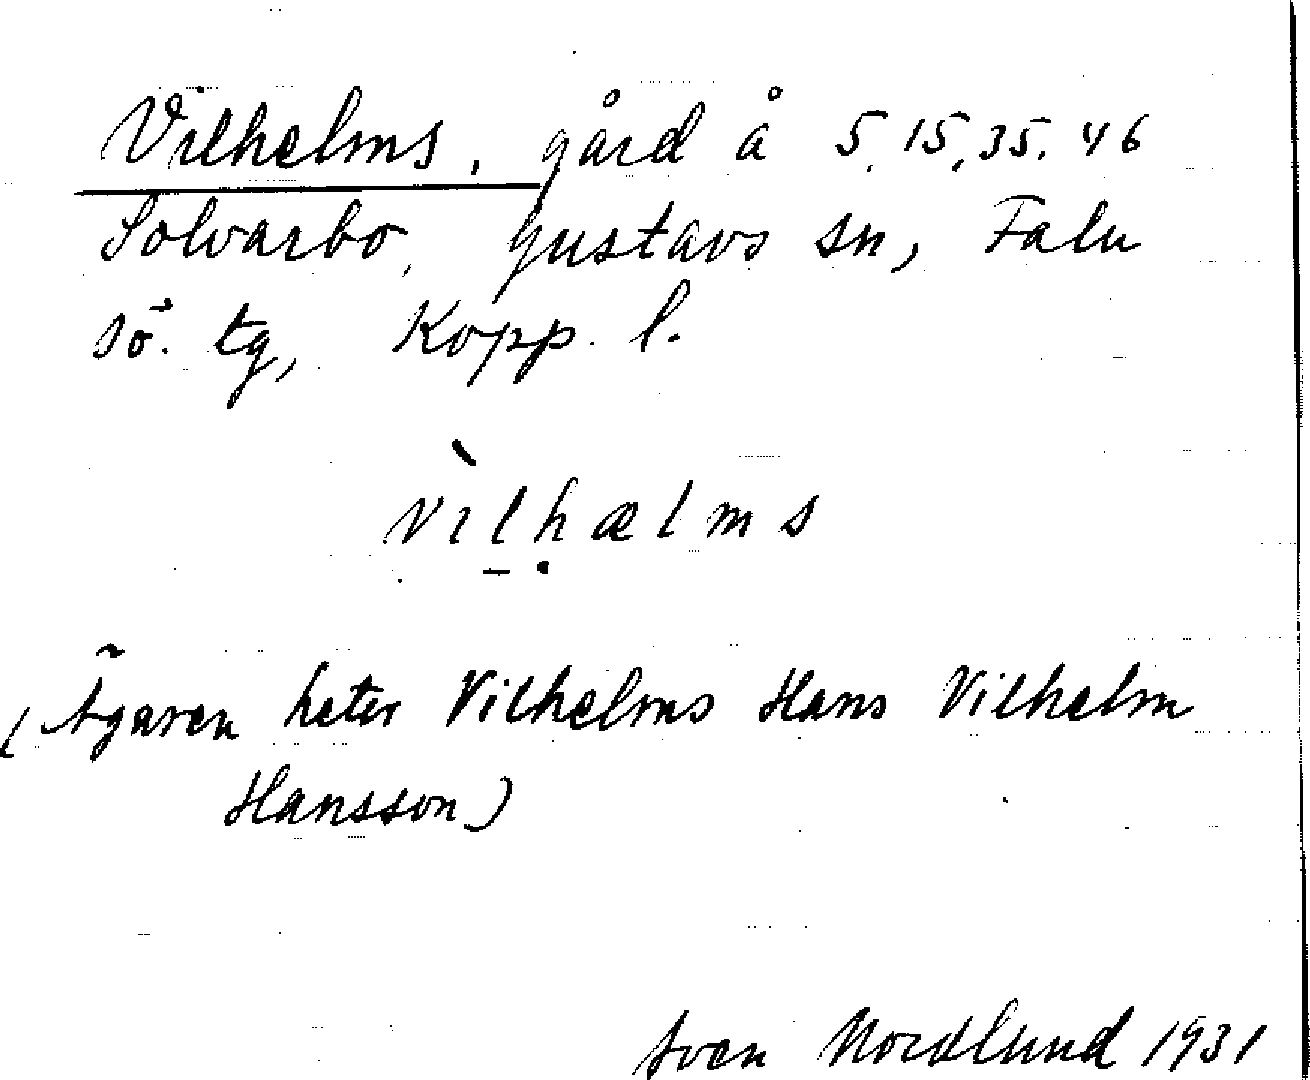 Vilhelms, gård å 5, 15, 35, 46
Solvarbo, Gustavs sn, Falu
sö. tg, Kopp. l.
vɩ̀lhælms
(Ägaren heter Vilhelms Hans Vilhelm
Hansson)
Sven Nordlund 1931